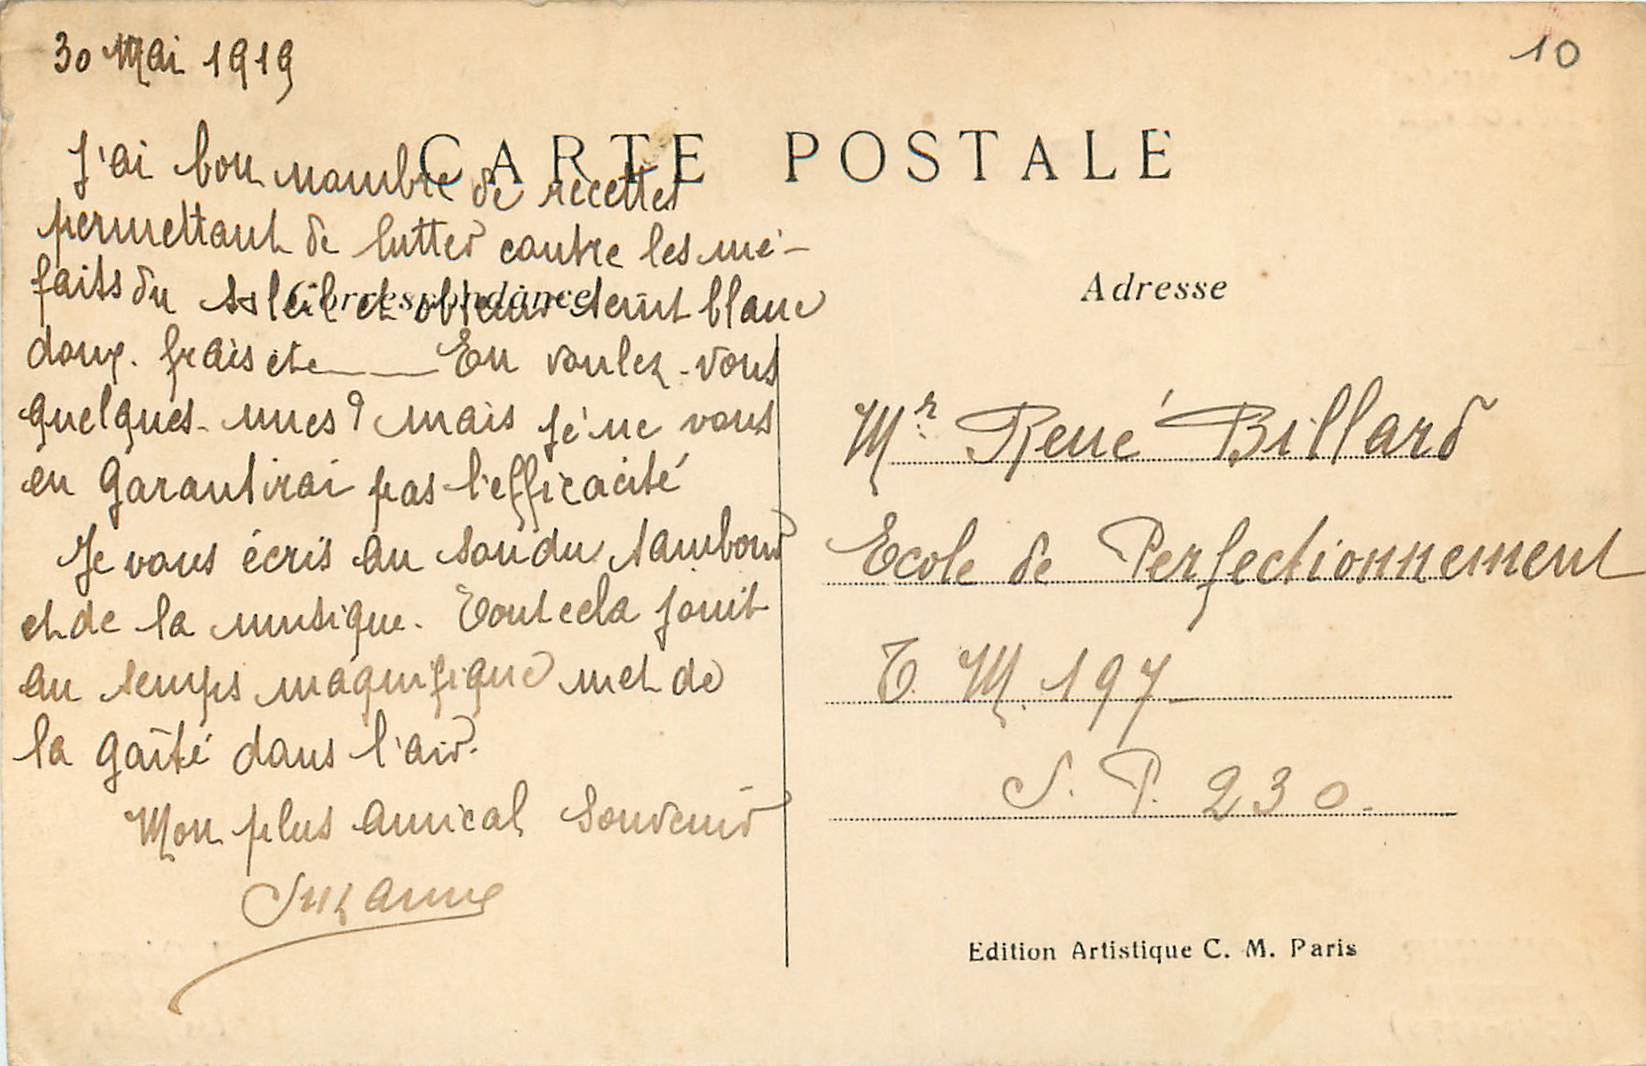 30 Mai 1919
10
CARTE POSTALE
J'ai bon nombre de recettes
permettant de lutter contre les mé-
faits du soleil et obtenir teint blanc
doux. frais etc____ En voulez-vous
quelques-unes? mais je ne vous
en garantirai pas l'efficacité
Je vous écris au son du tambour
et de la musique. Tout cela joint
au temps magnifique met de
la gaîté dans l'air.
Mon plus amical souvenir
Suzanne
Correspondance
Adresse
Mr René Billard
Ecole de Perfectionnement
T. M. 197
S. P. 230.
Edition Artistique C. M. Paris